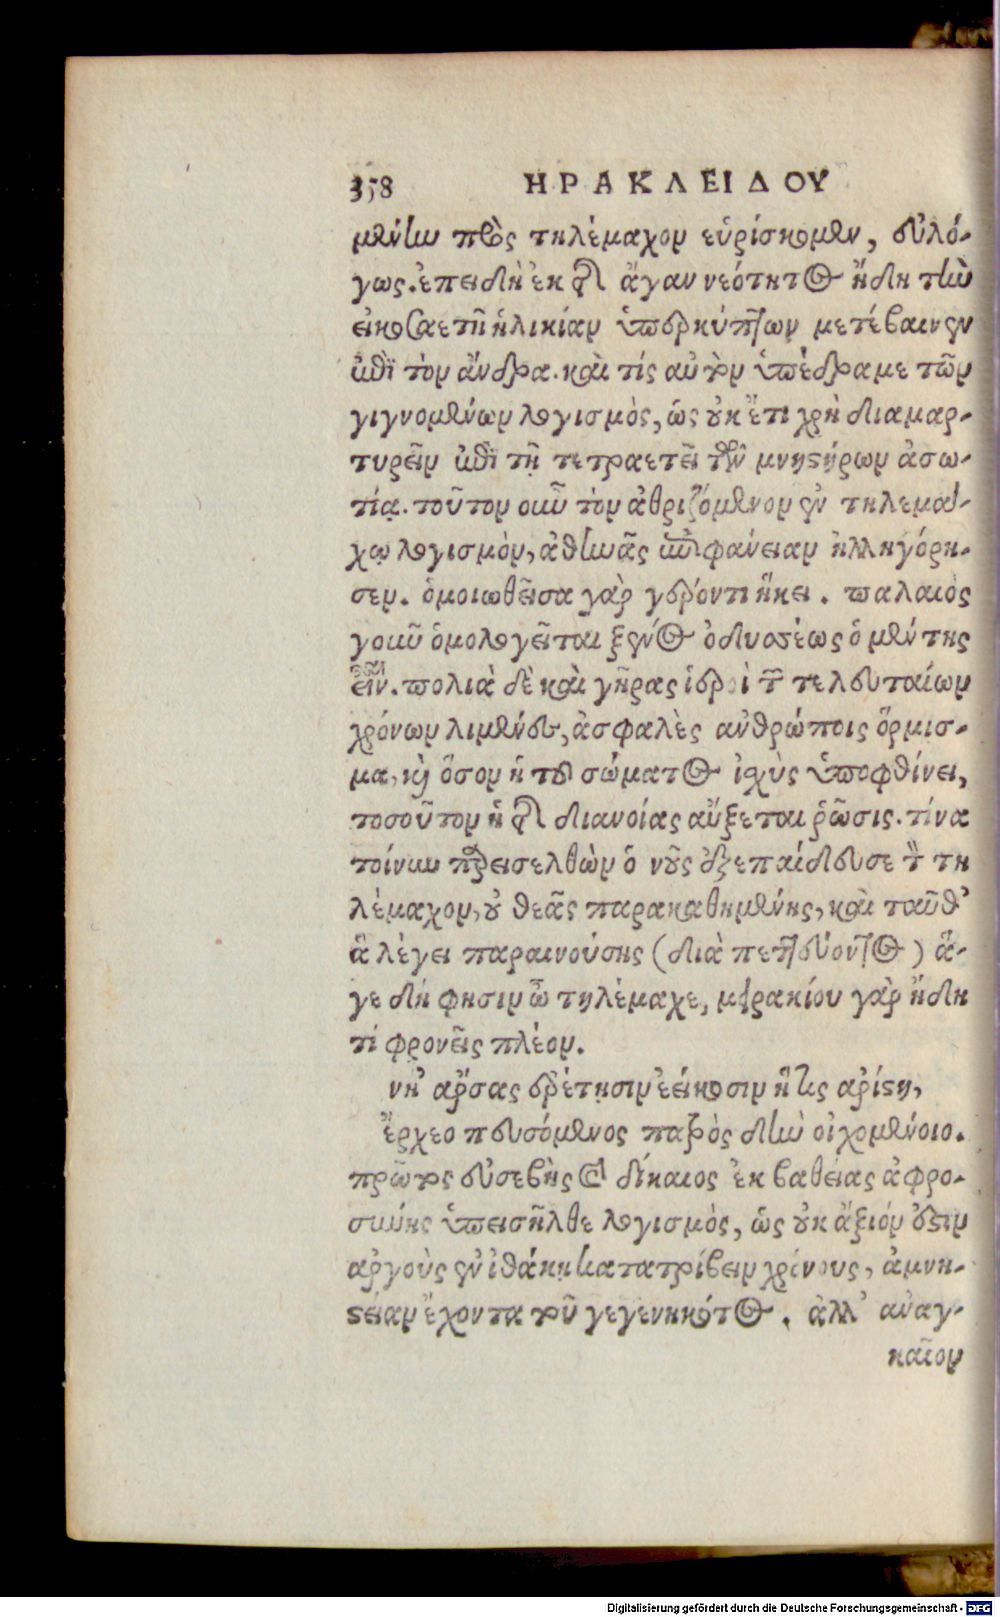 358 ΗΡΑΚΛΕΙΔΟΥ
μένην πρὸς τηλέμαχον εὑρίσκομεν, εὐλό-
γως. ἐπειδὴ ἐκ τῆς ἄγαν νεότητος ἤδη τὴν
εἰκοσαετῆ ἡλικίαν ὑπερκύπτων μετέβαινεν
ἐπὶ τὸν ἄνδρα. καὶ τίς αὐτὸν ὑπέδραμε τῶν
γιγνομένων λογισμὸς, ὡς οὐκ ἔτι χρὴ διαμαρ-
τυρεῖν ἐπὶ τῇ τετραετεῖ τῶν μνηστήρων ἀσω-
τίᾳ. τοῦτον οὖν τὸν ἀθριζόμενον ἐν τηλεμά-
χῳ λογισμὸν, ἀθηνᾶς ἐπιφάνειαν ἠλληγόρη-
σεν. ὁμοιωθεῖσα γὰρ γέροντι ἥκει. παλαιὸς
γοῦν ὁμολογεῖται ξένος ὀδυσσέως ὁ μέντης
εἶναι. πολιὰ δὲ καὶ γῆρας ἱεροὶ τῶν τελευταίων
χρόνων λιμένες, ἀσφαλὲς ἀνθρώποις ὅρμισ-
μα, καὶ ὅσον ἡ τοῦ σώματος ἰχὺς ὑποφθίνει,
τοσοῦτον ἡ τῆς διανοίας αὔξεται ῥῶσις. τίνα
τοίνυν παρεισελθὼν ὁ νοῦς ἐξεπαίδευσε τὸν τη
λέμαχον, οὐ θεᾶς παρακαθημένης, καὶ ταῦθ'
ἃ λέγει παραινούσης (διὰ πεττεύοντος) ἄ-
γε δή φησιν ὦ τηλέμαχε, μειρακίου γὰρ ἤδη
τί φρονεῖς πλέον.
νῆ' ἄρσας ἐρέτῃσιν ἐείκοσιν ἥ τις ἀρίστη,
ἔρχεο πευσόμενος πατρὸς δὴν οἰχομένοιο.
πρῶτος εὐσεβὴς καὶ δίκαιος ἐκ βαθείας ἀφρο-
σύνης ὑπεισῆλθε λογισμὸς, ὡς οὐκ ἄξιόν ἐστιν
ἀργοὺς ἐν ἰθάκῃ κατατρίβειν χρόνους, ἀμνη-
στείαν ἔχοντα τοῦ γεγενηκότος. ἀλλ' ἀναγ-
καῖον
Digitalisierung gefördert durch die Deutsche Forschungsgemeinschaft - DFG